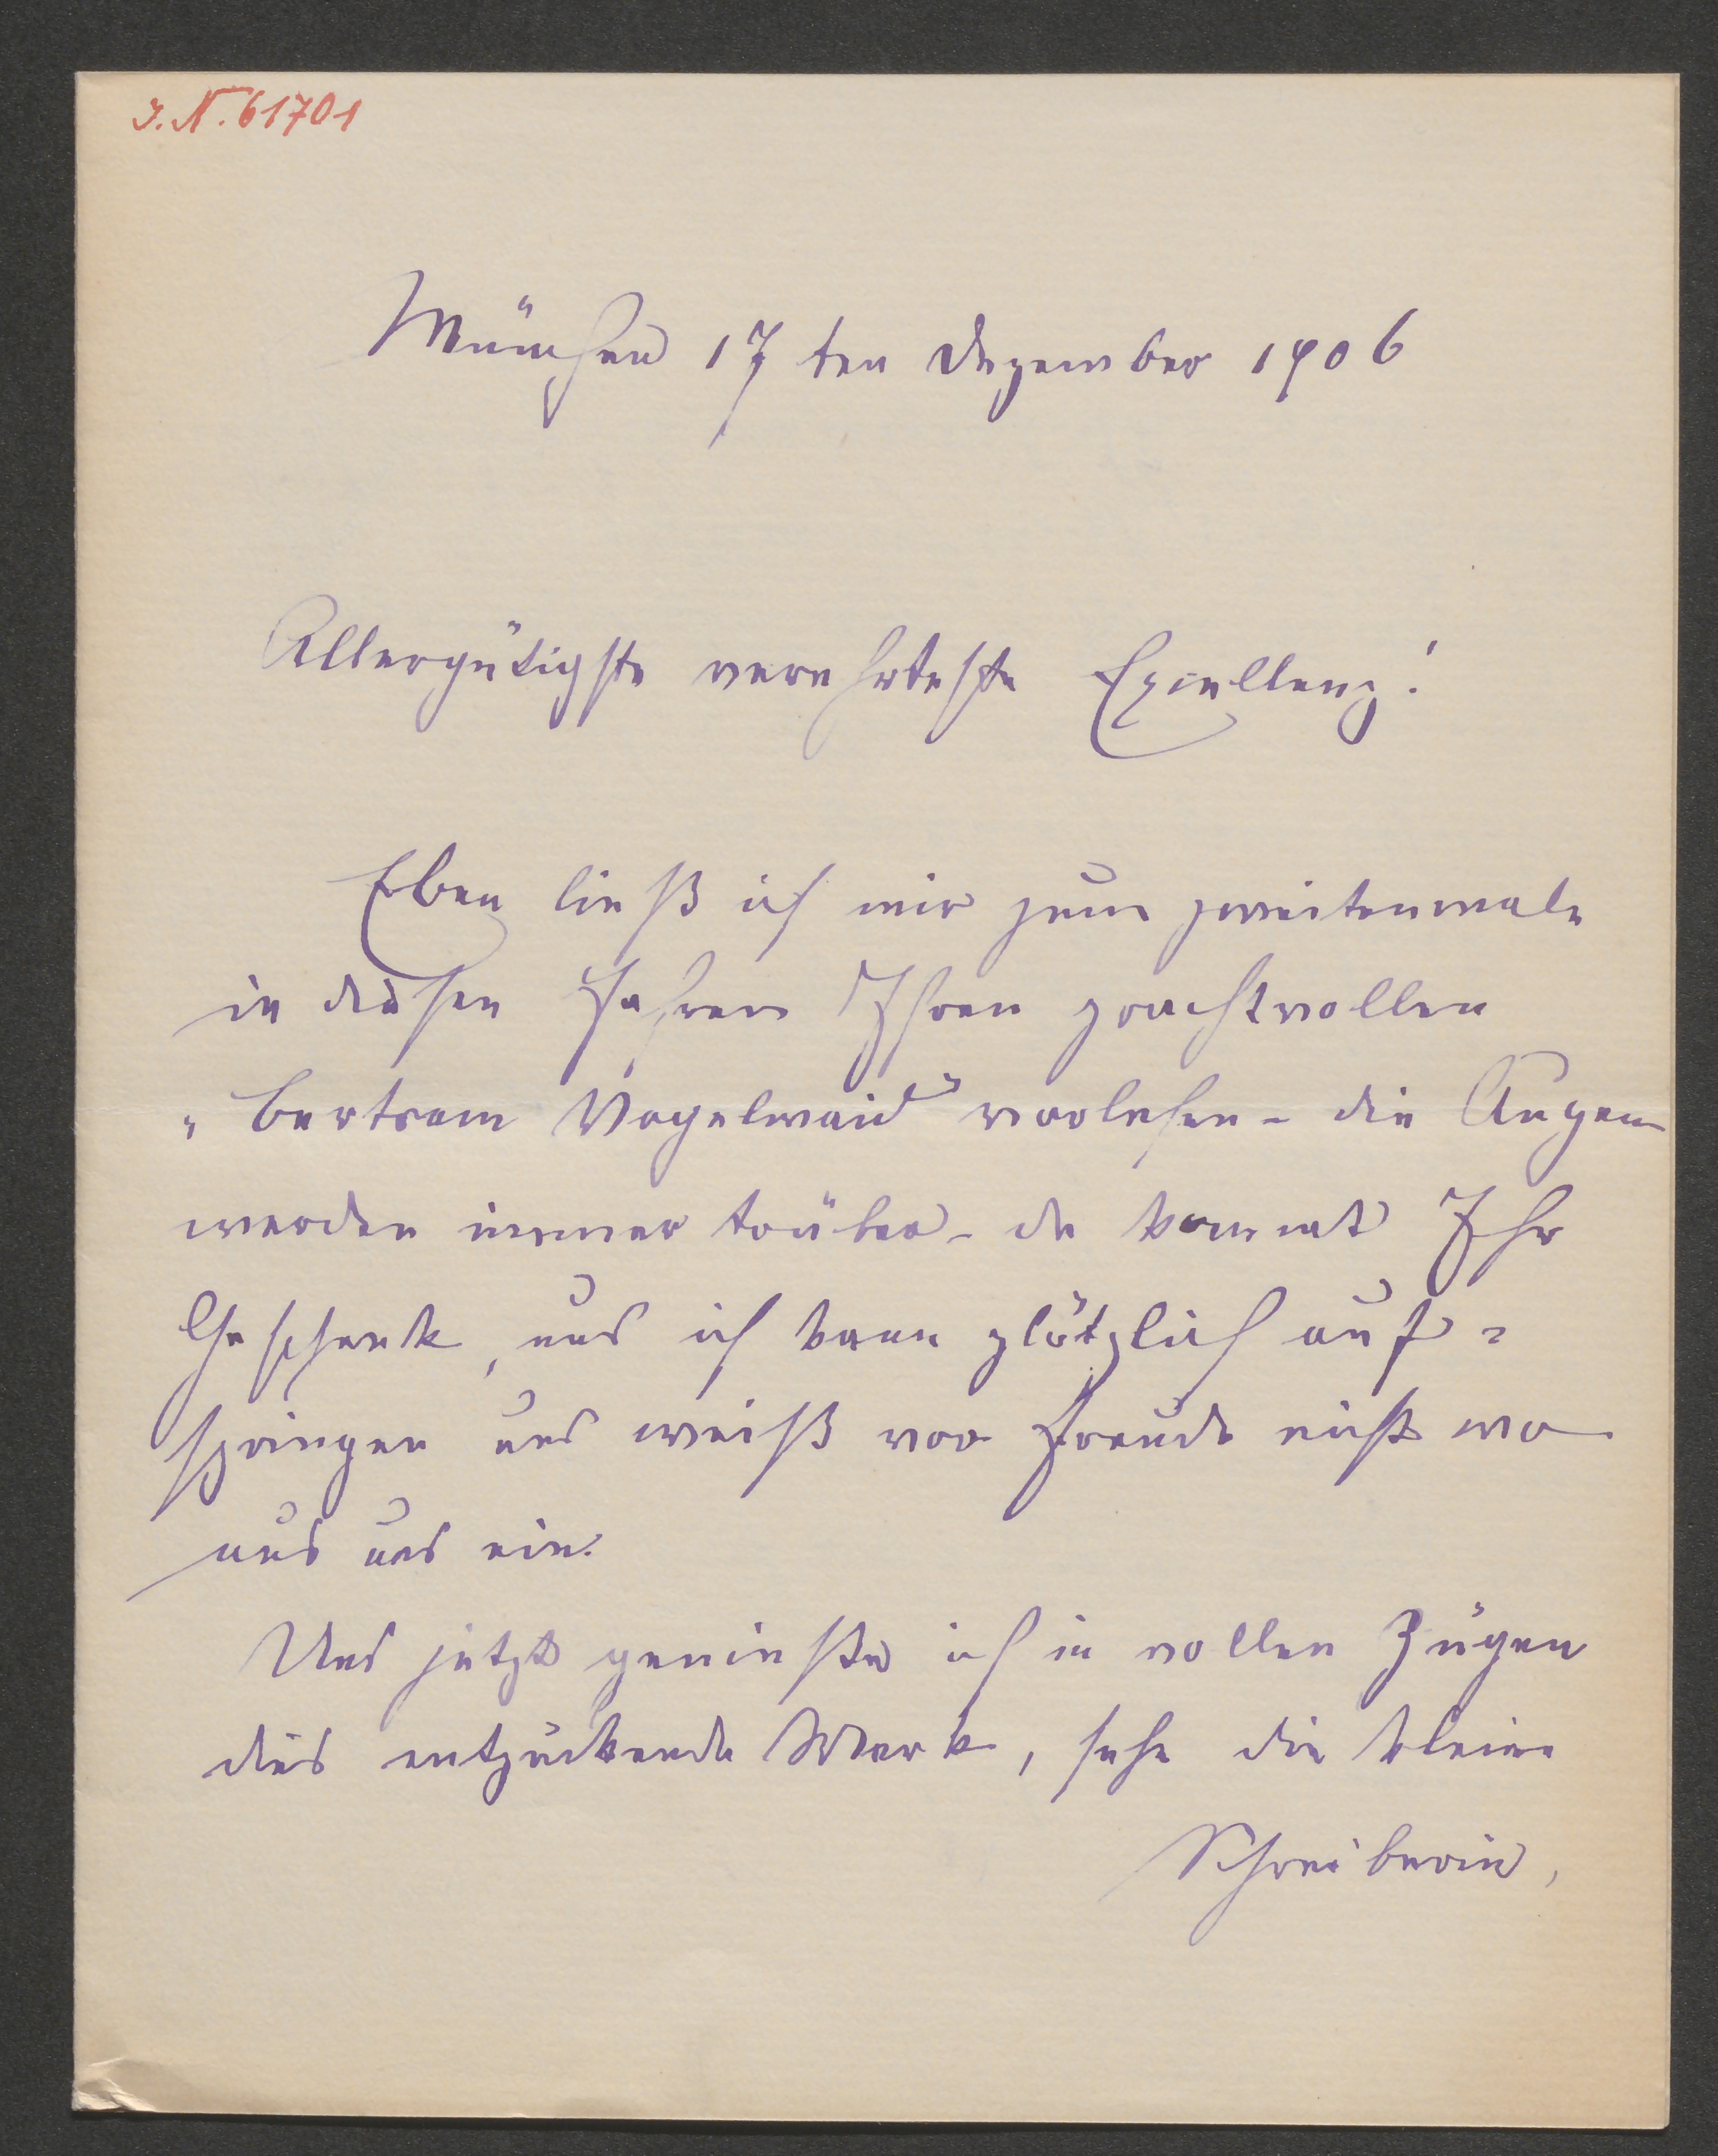 J.N. 61701
München 17ten Dezember 1906
Allergütigste verehrteste Excellenz!
Eben ließ ich mir zum zweitenmale
in diesen Jahren Ihren prachtvollen
„Bertram Vogelwaid" vorlesen - die Augen
werden immer trüber - da kommt Ihr
Geschenk, und ich kann plötzlich auf=
springen und weiß vor Freude nicht wo
aus und ein.
Und jetzt genieße ich in vollen Zügen
dies entzückende Werk, sehe die kleine
Schreiberin,